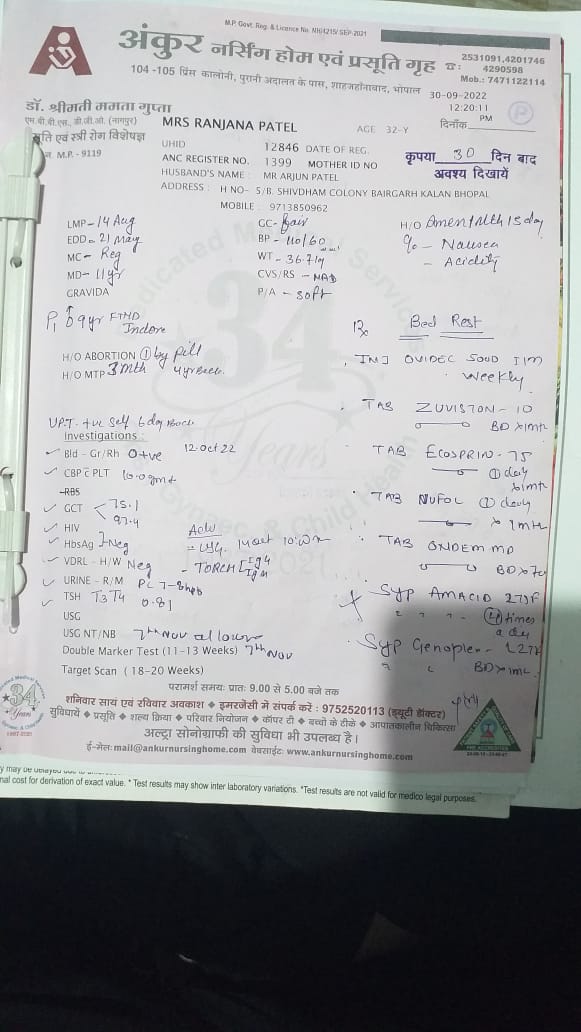 M.P. Govt. Reg. & Licence No. NH/4215/ SEP-2021
अंकुर नर्सिंग होम एवं प्रसूति गृह
2531091,4201746
☎: 4290598
Mob.: 7471122114
104 -105 प्रिंस कालोनी, पुरानी अदालत के पास, शाहजहाँनाबाद, भोपाल
30-09-2022
12:20:11 PM
दिनाँक
P
डॉ. श्रीमती ममता गुप्ता
एम.बी.बी.एस., डी.जी.ओ. (नागपुर)
सूति एवं स्त्री रोग विशेषज्ञ
M.P. - 9119
MRS RANJANA PATEL AGE 32-Y
UHID 12846 DATE OF REG.
ANC REGISTER NO. 1399 MOTHER ID NO
HUSBAND'S NAME : MR ARJUN PATEL
ADDRESS : H NO- 5/B. SHIVDHAM COLONY BAIRGARH KALAN BHOPAL
MOBILE : 9713850962
कृपया 30 दिन बाद
अवश्य दिखायें
LMP - 14 Aug
EDD - 21 May
MC - Reg
MD - 11yr
GRAVIDA
GC - fair
BP - 110/60
WT - 36.7kg
CVS/RS - NAD
P/A - soft
H/O Amen 1 Mth 15 day
c/o - Nausea
- Acidity
P1 9yr FTND
Indore
H/O ABORTION ① by pill
H/O MTP 3 mth 4yr Back
UPT - +ve self 6 day Back
Investigations :
Bld - Gr/Rh O+ve 12 Oct 22
CBP c̄ PLT 10.0 gm%
-RBS
GCT 75.1
97.4
HIV
HbsAg } Neg
VDRL - H/W Neg
URINE - R/M PC 7-8
TSH T3 T4 0.81
USG
USG NT/NB 7th Nov
Double Marker Test (11-13 Weeks) 7th Nov
Target Scan ( 18-20 Weeks)
Adv
- USG 14 Oct
- TORCH [ IgG
IgM
Rx Bed Rest
INJ OVIDEC 5000 IM
Weekly
TAB ZUVISTON - 10
BD x 1mth
TAB ECOSPRIN - 75
① day
x 1mth
TAB NUFOL ① daily
x 1 mth
TAB ONDEM MD
BD x 7d
SYP AMACID 2TSF
④ times
a day
SYP Genoplex - 2TSF
BD x 1mth
34 Years
Dedicated Medical Services
Gynaec & Child Health
परामर्श समयः प्रातः 9.00 से 5.00 बजे तक
शनिवार सायं एवं रविवार अवकाश ◆ इमरजेंसी में संपर्क करे : 9752520113 (ड्यूटी डॉक्टर)
सुविधायें ◆ प्रसूति ◆ शल्य क्रिया ◆ परिवार नियोजन ◆ कॉपर टी ◆ बच्चो के टीके ◆ आपातकालीन चिकित्सा
अल्ट्रा सोनोग्राफी की सुविधा भी उपलब्ध है।
ई-मेलः mail@ankurnursinghome.com वेबसाईटः www.ankurnursinghome.com
nal cost for derivation of exact value. * Test results may show inter laboratory variations. *Test results are not valid for medico legal purposes.